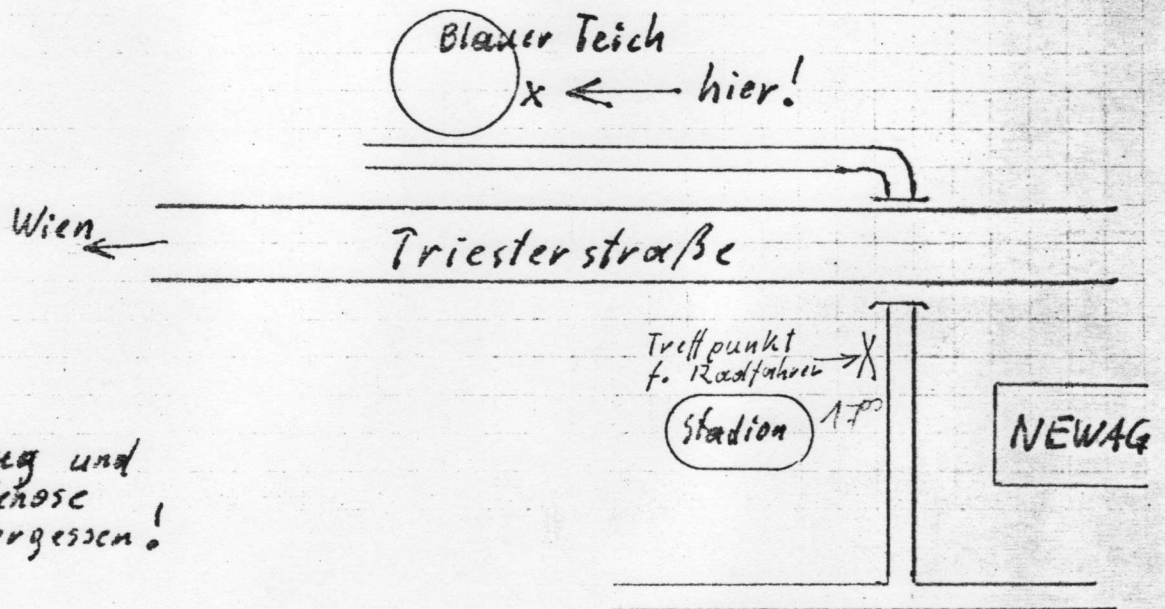 Blauer Teich
X ← hier!
Wien
Triesterstraße
Treffpunkt
f. Radfahrer → X
Stadion
17⁰⁰
NEWAG
und
ergessen!